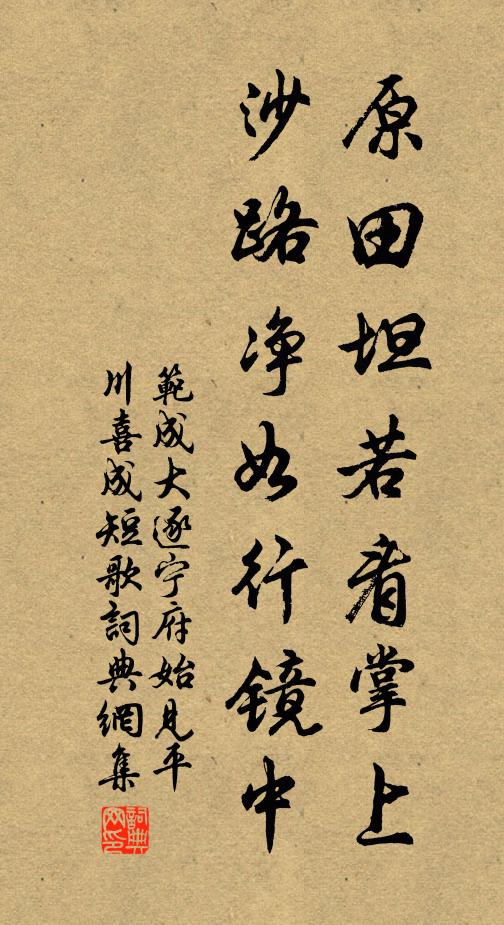 原田坦若看掌上
沙路净如行镜中
範成大逐宁府始見平
川喜成短歌詞典網集
詞典网印